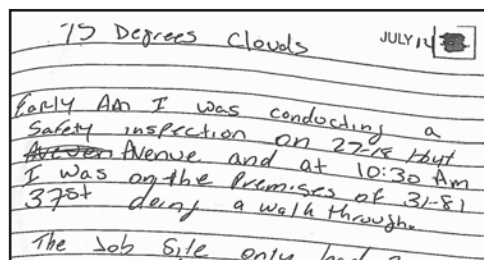 75 Degrees Clouds JULY 14
Early AM I was conducting a
Safety inspection on 27-18 Hoyt
Avenue and at 10:30 Am
I was on the Premises of 31-81
37st doing a walk through.
The Job Site only had